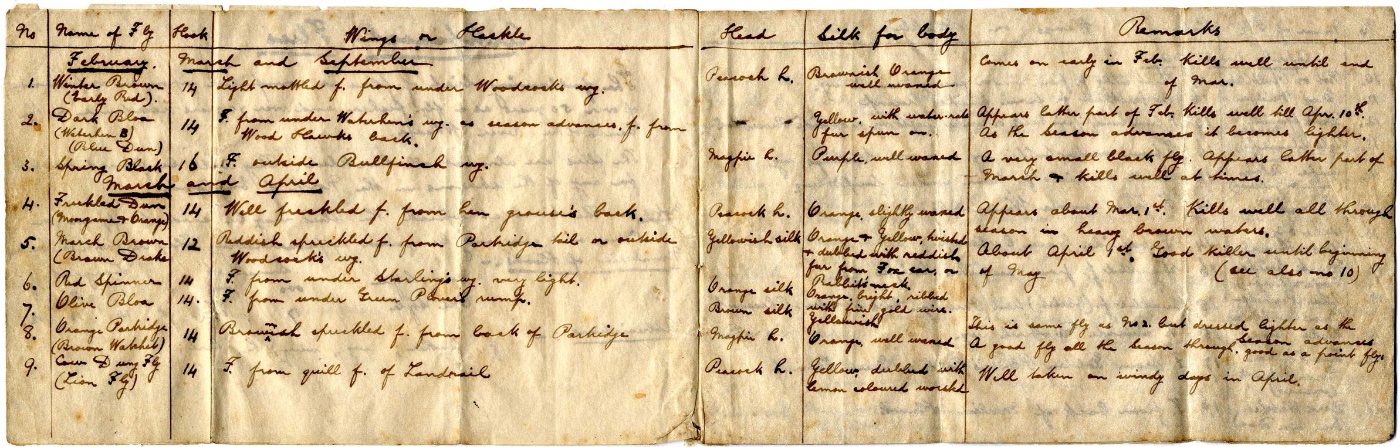 No Name of Fly Hook Wings or Hackle Head Silk for body Remarks
February. March and September
1. Winter Brown 14 Light mottled f. from under Woodcocks wg. Peacock h. Brownish Orange Comes on early in Feb. Kills well until end
(Early Red). well waxed of Mar.
2. Dark Bloa 14 F. from under Waterhen's wg. as season advances. f. from - - Yellow, with water-rats Appears latter part of Feb. Kills well till Apr. 10th.
(Waterhen B) Wood Hawks back. fur spun on. As the season advances it becomes lighter.
(Blue Dun)
3. Spring Black 16 F. outside Bullfinch wg. Magpie h. Purple, well waxed A very small black fly. Appears latter part of
March & kills well at times.
March and April
4. Freckled Dun 14 Well freckled f. from hen grouse's back. Peacock h. Orange, slightly waxed Appears about Mar. 1st. Kills well all through
& Orange) season in heavy brown waters.
5. March Brown 12 Reddish spreckled f. from Partridge tail or outside Yellowish silk Orange & Yellow, twisted About April 1st. Good killer until beginning
(Brown Drake Woodcock's wg. & dubbed with reddish of May (see also no 10)
fur from Fox ear, or
Rabbit's
6. Red Spinner 14 F. from under Starling's wg. very light. Orange silk Orange, bright, ribbed
with fine gold wire.
7. Olive Bloa 14. F. from under Green rump. Brown silk Yellowish This is same fly as No 2. but dressed lighter as the
season advances
8. Orange Partridge 14 Brownish spreckled f. from back of Partridge Magpie h. Orange, well waxed A good fly all the season through, good as a point fly.
(Brown Watchet)
9. Cow Dung Fly 14 F. from quill f. of Landrail Peacock h. Yellow, dubbed with Well taken on windy days in April.
(Lion Fly) lemon coloured worsted